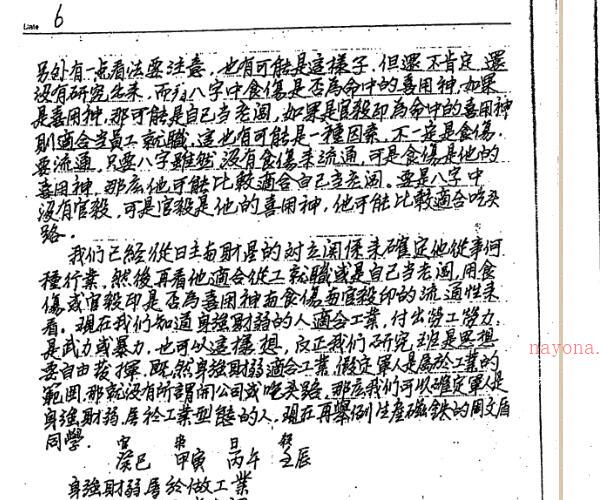 Date 6
另外有一点看法要注意，也有可能是這樣子，但還不肯定，還
沒有研究出來，而須八字中食傷是否為命中的喜用神，如果
是喜用神，那可能是自己当老闆，如果是官殺印為命中的喜用神
則適合当員工就職，這也有可能是一種因素，不一定是食傷
要流通，只要八字雖然沒有食傷來流通，可是食傷是他的
喜用神，那麽他可能比較適合自己当老闆。要是八字中
沒有官殺，可是官殺是他的喜用神，他可能比較適合吃头
路。
我们已經從日主与財星的对立関係來確定他從事何
種行業，然後再看他適合從工就職或是自己当老闆，用食
傷或官殺印是否為喜用神和食傷和官殺印的流通性來
看。現在我们知道身強財弱的人適合工業，付出勞工勞力，
是武力或暴力，也可以這樣想，反正我们研究就是思想
要自由發揮，既然身強財弱適合工業，假定軍人是屬於工業的
範圍，那就沒有所謂開公司或吃头路，那麽我们可以確定軍人是
身強財弱，屬於工業型態的人，現在再舉例生產磁鉄的周文盾
同學．
日
癸巳 甲寅 丙午 壬辰
身強財弱屬於做工業
nayona.